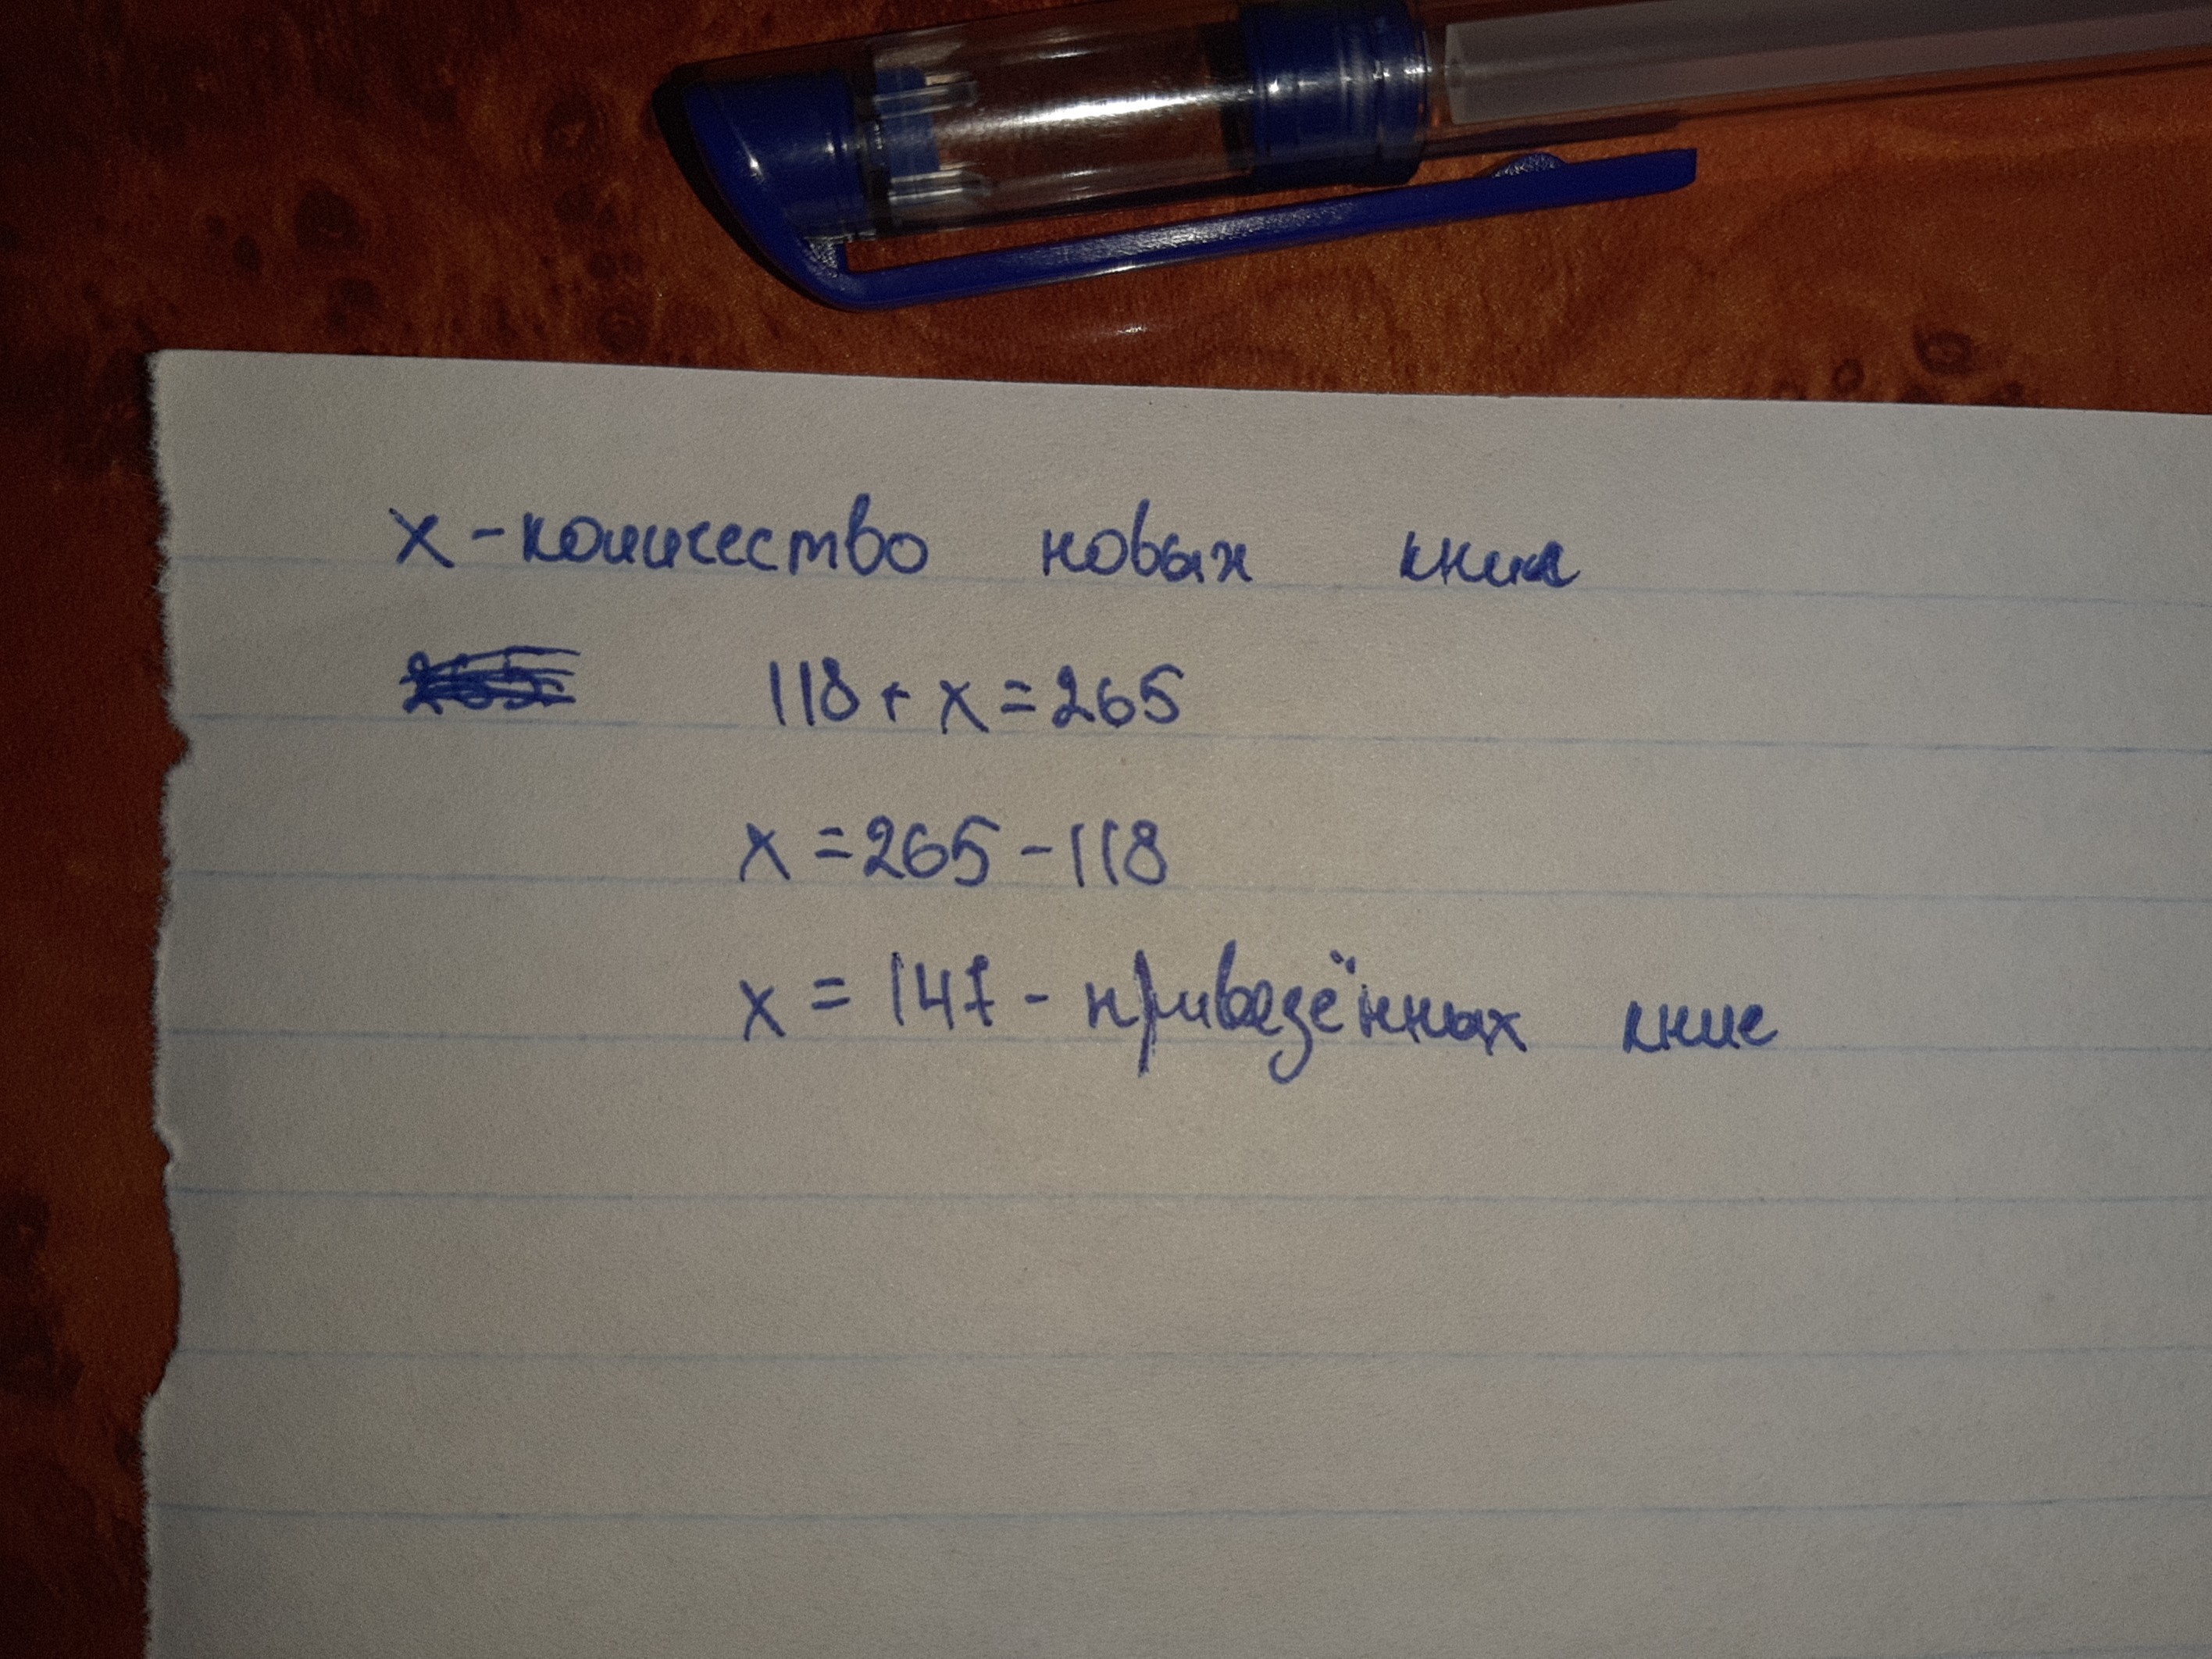 x - количество новых книг
118 + x = 265
x = 265 - 118
x = 147 - привезённых книг